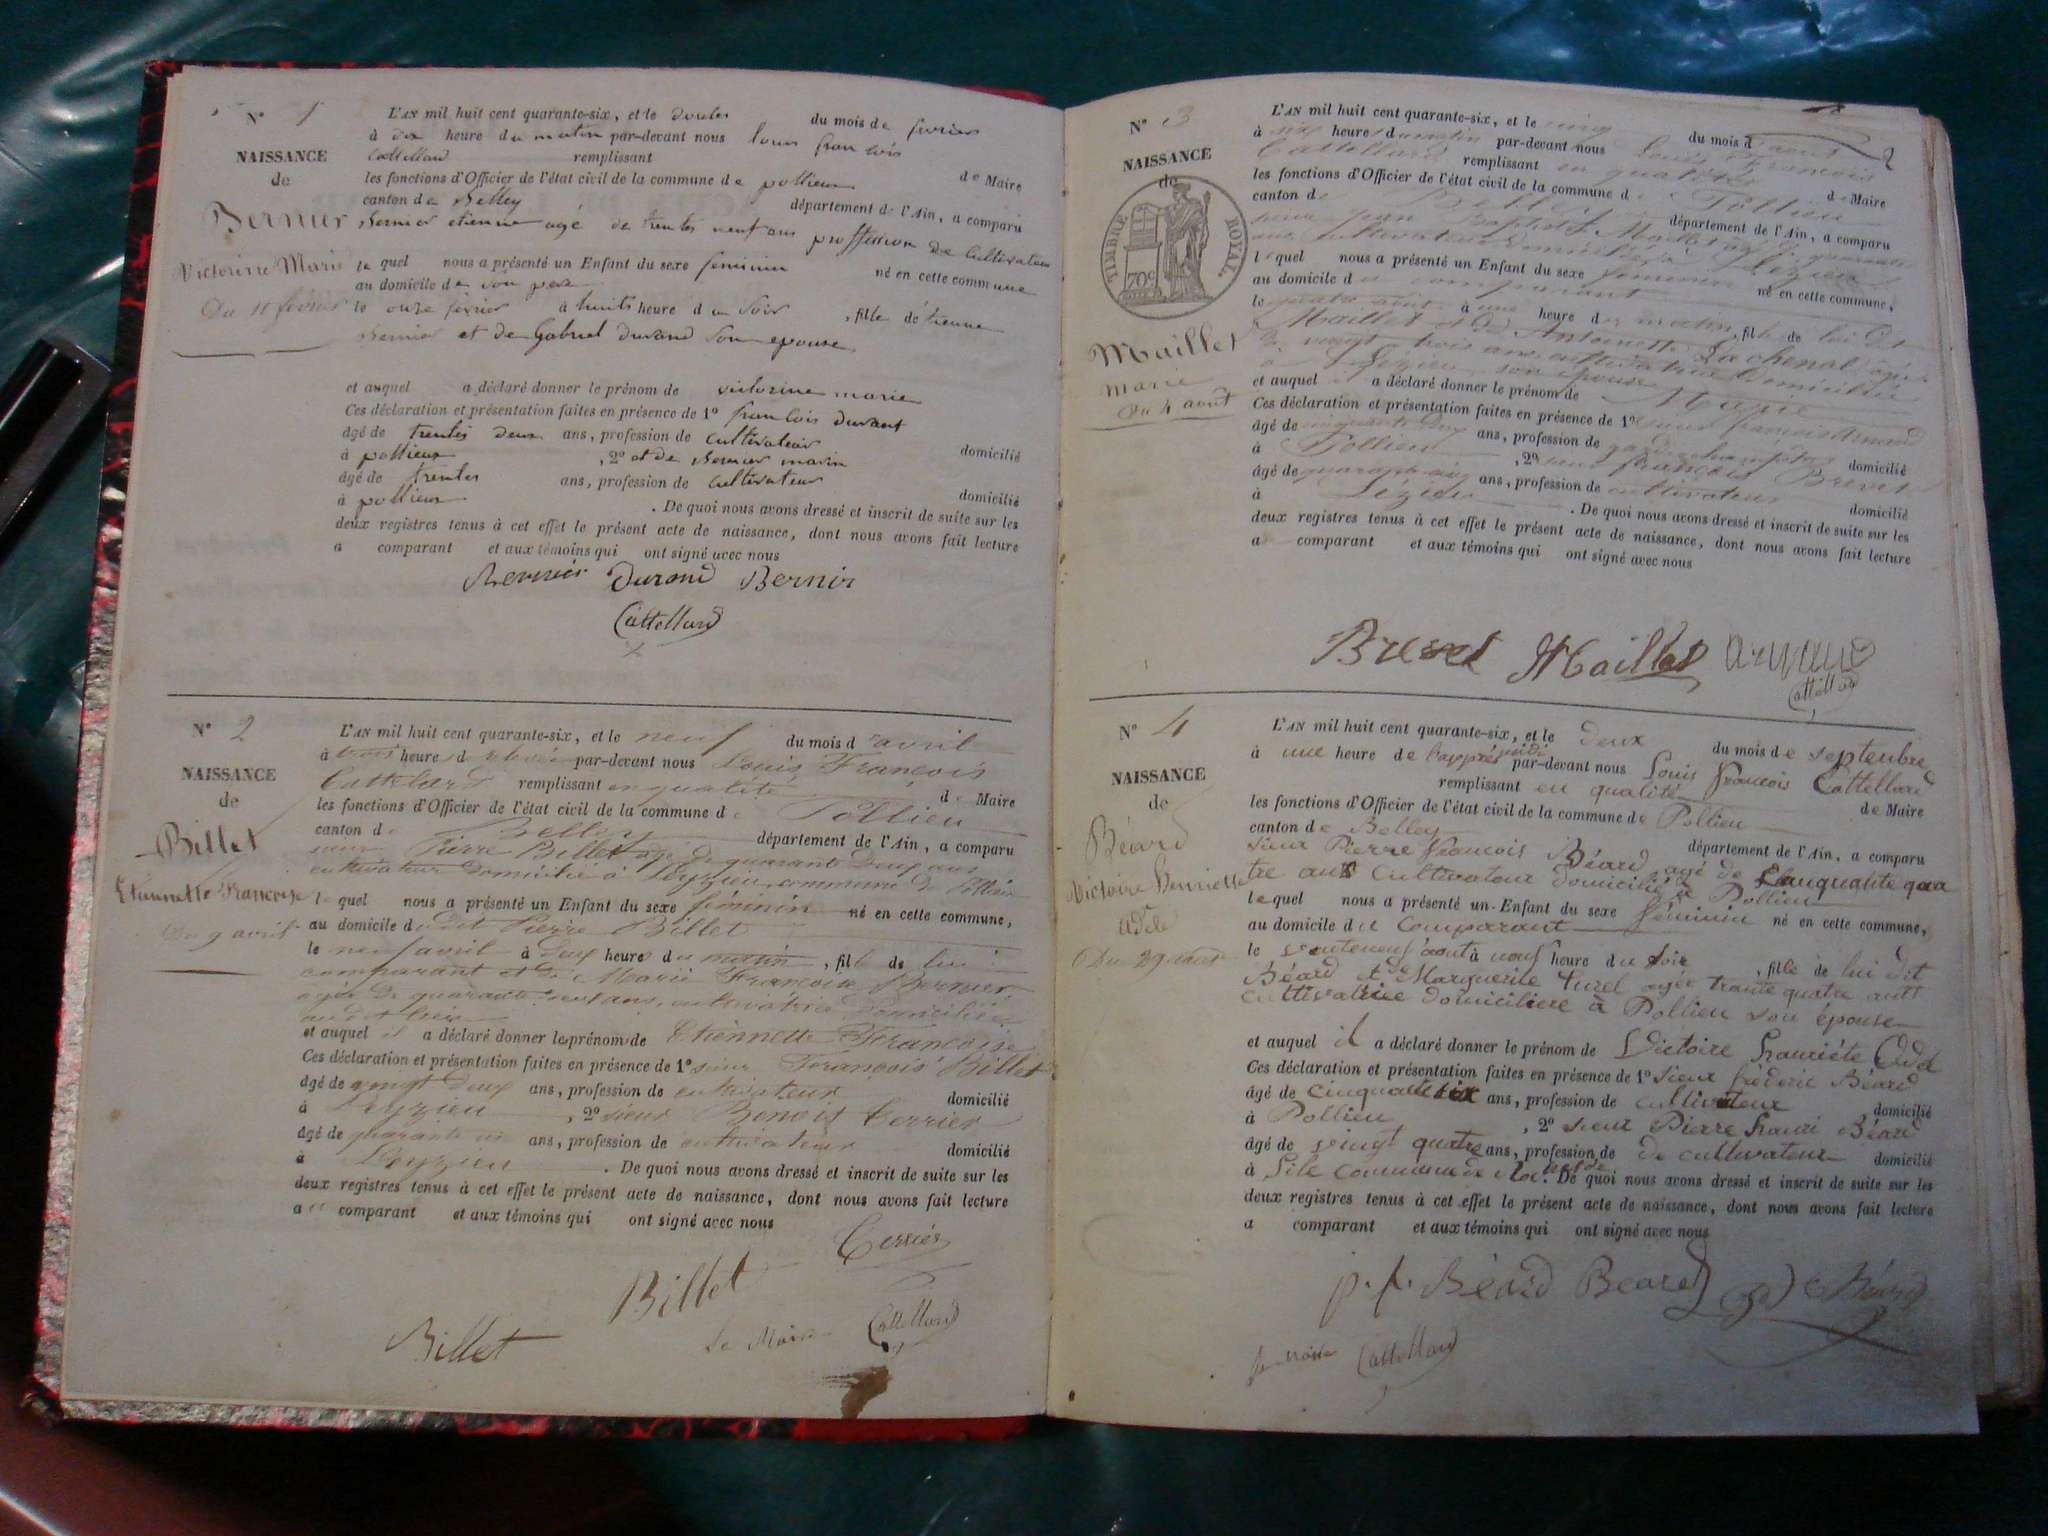 N° 1
NAISSANCE
de
Bernier
Victorine Marie
Du 11 février
L'AN mil huit cent quarante-six, et le doules du mois de fevrier
à dix heure du matin par-devant nous louis francois
Cattellard remplissant de Maire
les fonctions d'Officier de l'état civil de la commune de pollieux
canton de Belley département de l'Ain, a comparu
Bernier etienne agé de trentes neuf ans proffession de Cultivateur
le quel nous a présenté un Enfant du sexe feminin né en cette commune
au domicile de son pere
le onze fevrier à huits heure du soir, fille detienne
Bernier et de Gabriel durand son epouse
et auquel a déclaré donner le prénom de victorine marie
Ces déclaration et présentation faites en présence de 1° francois durant
âgé de trentes deux ans, profession de cultivateur domicilié
à pollieux, 2° et de Bernier marin
âgé de trentes ans, profession de cultivateur domicilié
à pollieux. De quoi nous avons dressé et inscrit de suite sur les
deux registres tenus à cet effet le présent acte de naissance, dont nous avons fait lecture
a comparant et aux témoins qui ont signé avec nous
Bernier Durand Bernir
Cattellard
N° 2
NAISSANCE
de
Billet
Etiennette Françoise
Du 9 avril
L'AN mil huit cent quarante-six, et le neuf du mois d'avril
à trois heure de relevée par-devant nous Louis François
Cattelard remplissant en qualité de Maire
les fonctions d'Officier de l'état civil de la commune de Pollieu
canton de Belley département de l'Ain, a comparu
sieur Pierre Billet agé de quarante deux ans
cultivateur domicilié à Leyzieu commune de Pollieu
le quel nous a présenté un Enfant du sexe féminin né en cette commune,
au domicile dudit Pierre Billet
le neuf avril à deux heure du matin, fille de lui
comparant et de Marie Françoise Bernier
agée de quarante ans, cultivatrice domiciliée
audit lieu
et auquel il a déclaré donner les prénom de Etiennette Françoise
Ces déclaration et présentation faites en présence de 1° sieur François Billet
âgé de vingt deux ans, profession de cultivateur domicilié
à Leyzieu, 2° sieur Benoit Terrier
âgé de quarante un ans, profession de cultivateur domicilié
à Leyzieu. De quoi nous avons dressé et inscrit de suite sur les
deux registres tenus à cet effet le présent acte de naissance, dont nous avons fait lecture
au comparant et aux témoins qui ont signé avec nous
Terrier
Billet
Billet Le Maire Cattellard
2
N° 3
NAISSANCE
de
TIMBRE ROYAL
70c
Maillet
Marie
Du 4 août
L'AN mil huit cent quarante-six, et le cinq du mois d'août
à six heure du matin par-devant nous Louis François
Cattellard remplissant en qualité de Maire
les fonctions d'Officier de l'état civil de la commune de Pollieu
canton de Belley département de l'Ain, a comparu
sieur Jean Baptiste Maillet agé de quarante
ans cultivateur domicilié à Lézieu
lequel nous a présenté un Enfant du sexe féminin né en cette commune,
au domicile du comparant
le quatre août à une heure du matin, fille de lui dit
Maillet et de Antoinette Lachenal agée
de vingt trois ans cultivatrice domiciliée
à Lézieu son épouse
et auquel a déclaré donner le prénom de Marie
Ces déclaration et présentation faites en présence de 1° sieur françois Arnaud
âgé de cinquante deux ans, profession de garde champêtre domicilié
à Pollieu, 2° sieur François Brevet
âgé de quarante cinq ans, profession de cultivateur domicilié
à Lézieu. De quoi nous avons dressé et inscrit de suite sur les
deux registres tenus à cet effet le présent acte de naissance, dont nous avons fait lecture
au comparant et aux témoins qui ont signé avec nous
Brevet Maillet arnaud
Cattellard
N° 4
NAISSANCE
de
Béard
Victoire Henriette
adèle
Du 29 août
L'AN mil huit cent quarante-six, et le deux du mois de septembre
à une heure de l'apprés midi par-devant nous Louis francois Cattellard
remplissant en qualité de Maire
les fonctions d'Officier de l'état civil de la commune de Pollieu
canton de Belley département de l'Ain, a comparu
sieur Pierre francois Béard agé de Cinquante qua
tre ans Cultivateur domicilié à Pollieu
lequel nous a présenté un Enfant du sexe féminin né en cette commune,
au domicile du Comparant
le vinteneuf août à neuf heure du soir, fille de lui dit
Béard et de Marguerite Turel agée trante quatre ants
cultivatrice domiciliere à Pollieu son épouse
et auquel il a déclaré donner le prénom de Victoire hauriéte Adel
Ces déclaration et présentation faites en présence de 1° sieur fréderic Béard
âgé de cinquante six ans, profession de cultivateur domicilié
à Pollieu, 2° sieur Pierre hauri Béard
âgé de vingt quatre ans, profession de de cultivateur domicilié
à Commune de. De quoi nous avons dressé et inscrit de suite sur les
deux registres tenus à cet effet le présent acte de naissance, dont nous avons fait lecture
a comparant et aux témoins qui ont signé avec nous
p. f. Béard Beard Béard
le Maire Cattellard